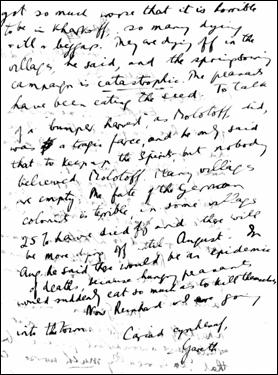 got so much worse that it is horrible
to be in Kharkoff, so many dying
with a beggar. They are dying off in the
villages, he said, and the spring sowing
campaign is catastrophic. The peasants
have been eating the seed. To talk
of a bumper harvest as Molotoff did,
was a tragic farce and he only said
that to keep up the spirits but nobody
believed Molotoff. Many villages
are empty. The fate of the German
colonists is terrible. In some villages
25% have died off and there will
be more dying off till August. In
Aug. he said there would be an epidemic
of deaths, because hungry peasants
would suddenly eat so much as to kill themselves
Now Reinhard & I are going
into the town.
Cariad cynhesaf,
Gareth.